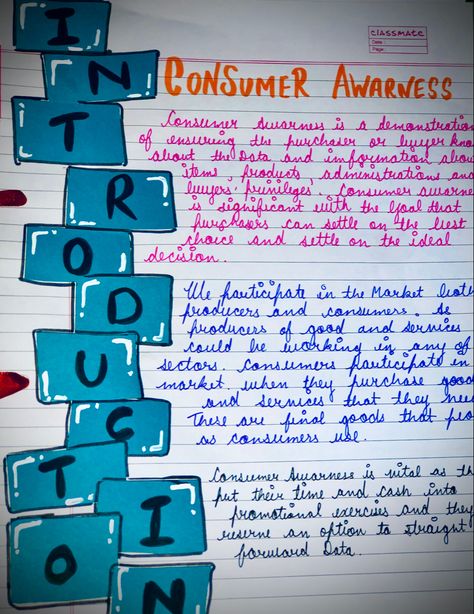 INTRODUCTION
classmate
Date :
Page :
CONSUMER AWARNESS
Consumer Awarness is a demonstration
of ensuring the purchaser or buyer kno
about the Data and information abou
items, products, administrations and
buyers' privileges. Consumer awarne
is significant with the goal that
purchasers can settle on the best
choice and settle on the ideal
decision.
We participate in the Market both
producers and consumers. As
producers of good and services
could be working in any of
sectors. Consumers participate in
market when they purchase goods
and services that they need
These are final goods that peo
as consumers use.
Consumer Awarness is vital as th
put their time and cash into
promotional exercises and they
reserve an option to straight
forward Data.